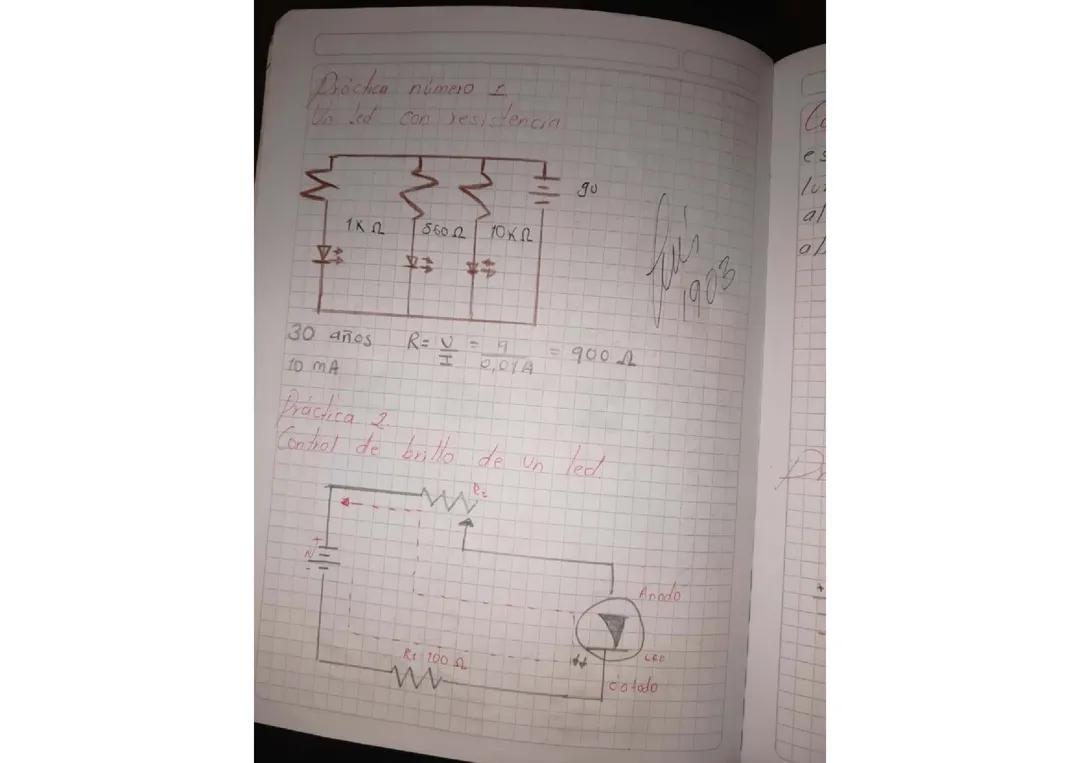 Práctica número 1
Un led con resistencia
9v
1K Ω
560 Ω
10K Ω
1903
30 años
R= V/I = 9/0,01A = 900 Ω
10 mA
Práctica 2
Control de brillo de un led
R2
+
-
Anodo
LED
R1 100 Ω
Catodo
es
al